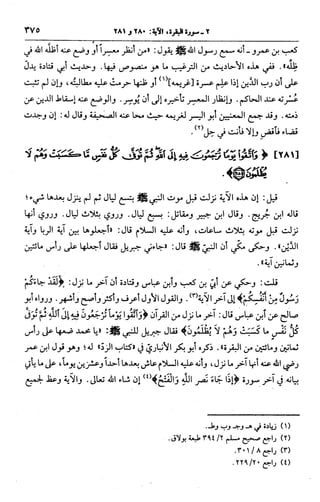 ٢ - سورة البقرة، الآية: ٢٨٠ و ٢٨١
٣٧٥
كعب بن عمرو - أنه سمع رسول الله ﷺ يقول: «من أنظر معسراً أو وضع عنه أظلّه الله في
ظِلّه». ففي هذه الأحاديث من الترغيب ما هو منصوص فيها. وحديث أبي قتادة يدلّ
على أن رب الدَّين إذا علِم عسرة [غريمه](١) أو ظنها حرمتْ عليه مطالبتُه، وإن لم تثبت
عُسرته عند الحاكم. وإنظار المعسِر تأخيره إلى أن يُوسِر. والوضع عنه إسقاط الدين عن
ذمّته. وقد جمع المعنيين أبو اليسر لغريمه حيث محا عنه الصحيفة وقال له: إن وجدت
قضاء فٱقض وإلّا فأنت في حِلّ(٢).
[٢٨١] ﴿ وَاتَّقُوا يَوْمًا تُرْجَعُونَ فِيهِ إِلَى اللَّهِ ثُمَّ تُوَفَّى كُلُّ نَفْسٍ مَّا كَسَبَتْ وَهُمْ لَا
يُظْلَمُونَ ﴾.
قيل: إن هذه الآية نزلت قبل موت النبيّ ﷺ بتسع ليال ثم لم ينزل بعدها شيء؛
قاله ابن جُريج. وقال ابن جبير ومقاتل: بسبع ليال. وروي بثلاث ليال. وروي أنها
نزلت قبل موته بثلاث ساعات، وأنه عليه السلام قال: «اجعلوها بين آية الربا وآية
الدَّين». وحكى مكّي أن النبيّ ﷺ قال: «جاءني جبريل فقال أجعلها على رأس مائتين
وثمانين آية».
قلت: وحكي عن أبيّ بن كعب وٱبن عباس وقتادة أن آخر ما نزل: ﴿لَقَدْ جَاءَكُمْ
رَسُولٌ مِنْ أَنْفُسِكُمْ﴾ إلى آخر الآية(٣). والقول الأوّل أعرف وأكثر وأصح وأشهر. ورواه أبو
صالح عن ٱبن عباس قال: آخر ما نزل من القرآن ﴿وَاتَّقُوا يَوْمًا تُرْجَعُونَ فِيهِ إِلَى اللَّهِ ثُمَّ تُوَفَّى
كُلُّ نَفْسٍ مَا كَسَبَتْ وَهُمْ لَا يُظْلَمُونَ﴾ فقال جبريل للنبيّ ﷺ: «يا محمد ضعها على رأس
ثمانين ومائتين من البقرة». ذكره أبو بكر الأنباريّ في «كتاب الردّ» له؛ وهو قول ٱبن عمر
رضي الله عنه أنها آخر ما نزل، وأنه عليه السلام عاش بعدها أحداً وعشرين يوماً، على ما يأتي
بيانه في آخر سورة ﴿إِذَا جَاءَ نَصْرُ اللَّهِ وَالْفَتْحُ﴾(٤) إن شاء الله تعالى. والآية وعظ لجميع
(١) زيادة في هـ وجـ وب وط.
(٢) راجع صحيح مسلم ٢/ ٣٩٤ طبعة بولاق.
(٣) راجع ٨/ ٣٠١.
(٤) راجع ٢٠/ ٢٢٩.